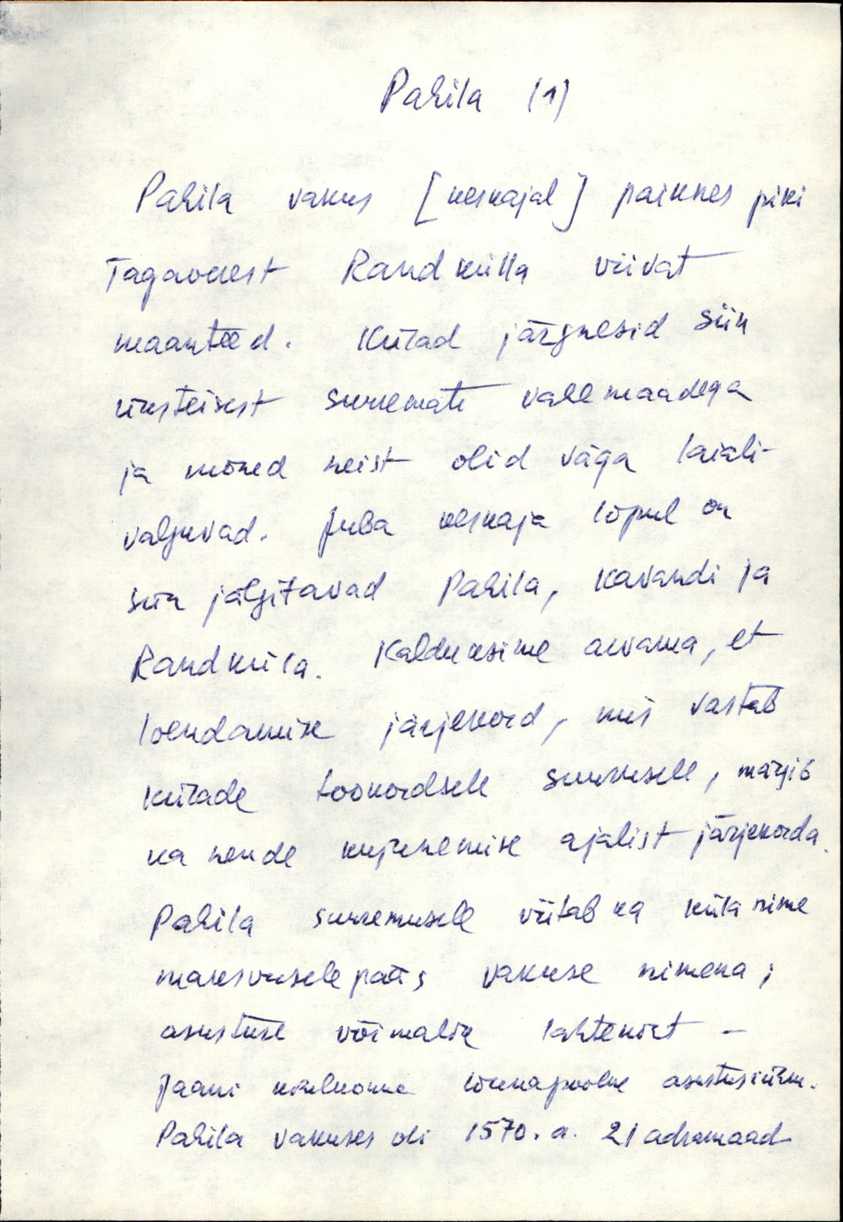 Pahila (1)
Pahila vakus [keskajal] paiknes piki
Tagaverest Randkülla viivat
maanteed. Külad järgnesid siin
üksteisest suuremate vahemaadega
ja mõned neist olid väga laiali-
valguvad. Juba keskaja lõpul on
siin jälgitavad Pahila, Kavandi ja
Randküla. Kalduksime arvama, et
loendamise järjekord, mis vastab
külade tookordsele suurusele, märgib
ka nende kujunemise ajalist järjekorda.
Pahila suuremusele viitab ka küla nime
maksvusele pääs vakuse nimena;
asustuse võimalik lähtekoht –
Jaani kihelkonna lõunapoolne asustusüksus.
Pahila vakuses oli 1570. a. 21 adramaad